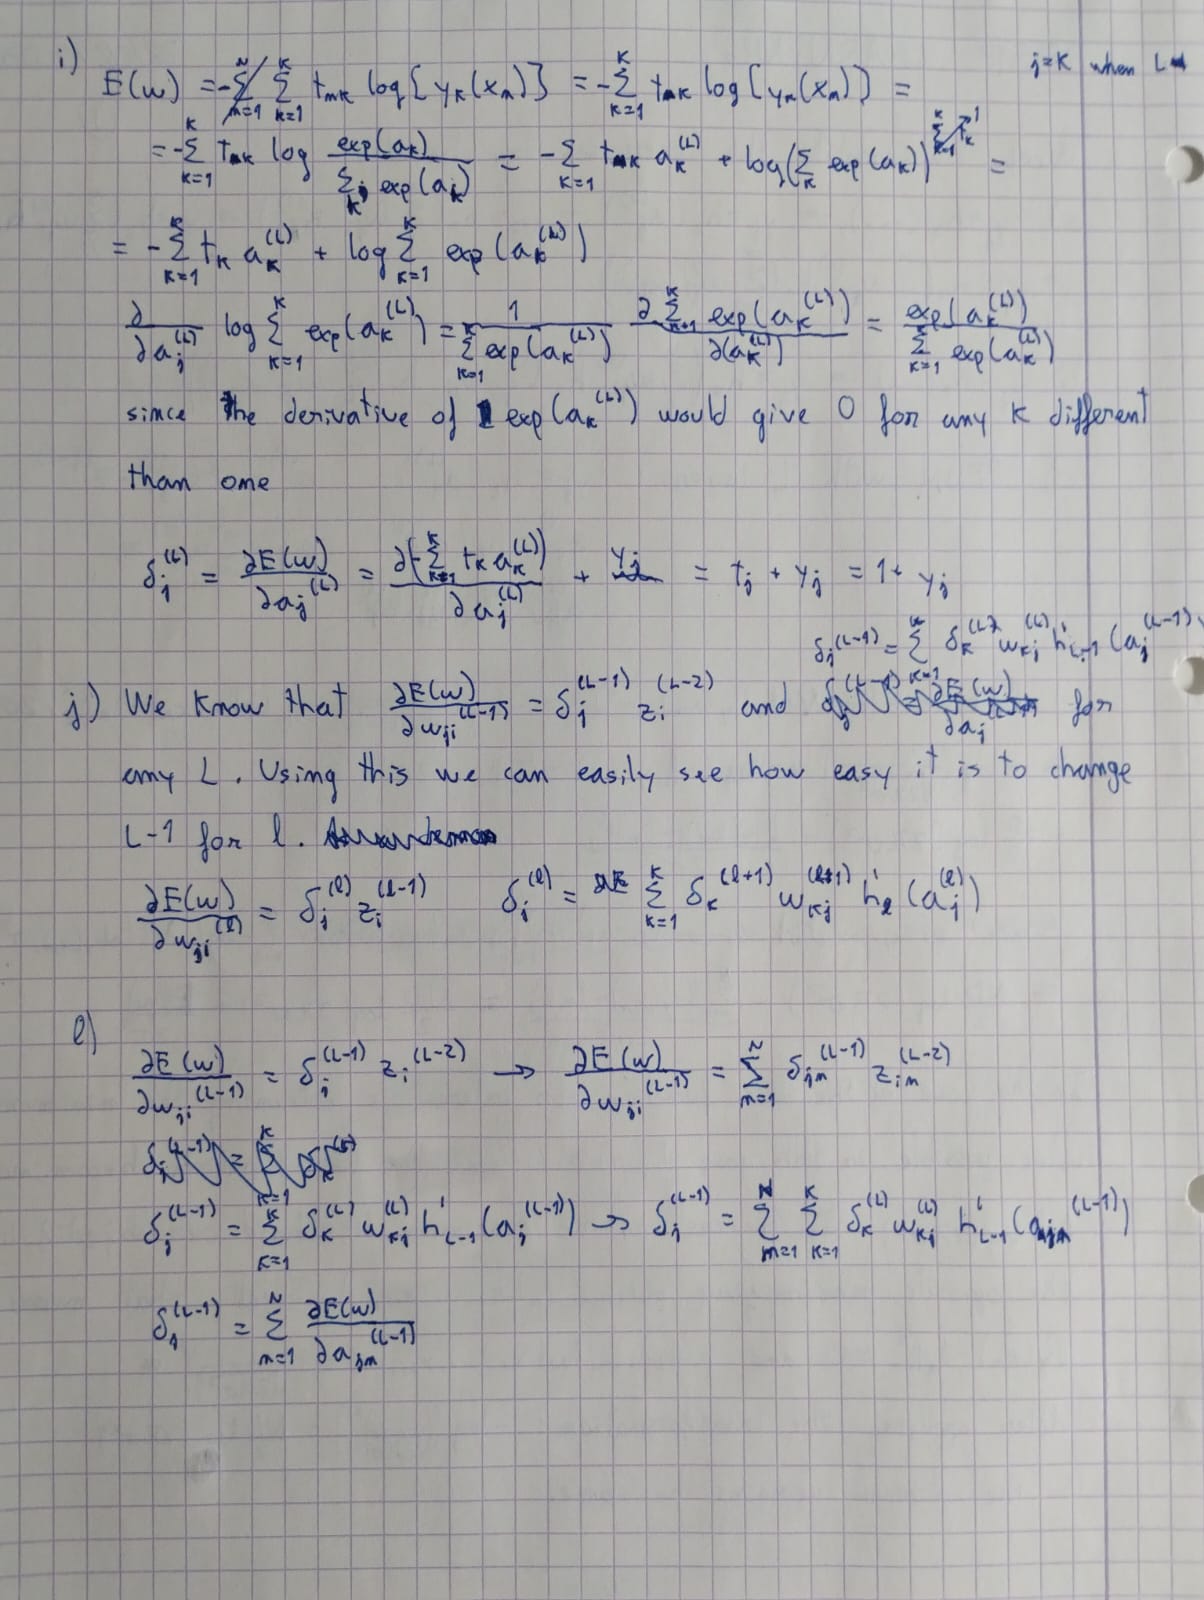 i)
E(w) = -∑_{n=1}^{N} ∑_{k=1}^{K} t_{nk} log{y_k(x_n)} = -∑_{k=1}^{K} t_{nk} log[y_k(x_n)] = j=K when L
= -∑_{k=1}^{K} t_{nk} log exp(a_k) / ∑_k exp(a_k) = -∑_{k=1} t_{nk} a_k^{(L)} + log(∑_k exp(a_k))^{∑_{k=1}^{K} t_k → 1} =
= -∑_{k=1}^{K} t_k a_k^{(L)} + log ∑_{k=1}^{K} exp(a_k^{(L)})
∂/∂a_j^{(L)} log ∑_{k=1}^{K} exp(a_k^{(L)}) = 1 / ∑_{k=1}^{K} exp(a_k^{(L)}) ∂∑_{k=1}^{K} exp(a_k^{(L)}) / ∂(a_k^{(L)}) = exp(a_k^{(L)}) / ∑_{k=1}^{K} exp(a_k^{(L)})
since the derivative of exp(a_k^{(L)}) would give 0 for any k different
than one
δ_j^{(L)} = ∂E(w)/∂a_j^{(L)} = ∂(-∑_{k=1}^{K} t_k a_k^{(L)}) / ∂a_j^{(L)} + y_j = t_j + y_j = 1 + y_j
δ_j^{(L-1)} = ∑_{k=1}^{K} δ_k^{(L)} w_{kj}^{(L)} h'_{L-1}(a_j^{(L-1)})
j) We know that ∂E(w)/∂w_{ji}^{(L-1)} = δ_j^{(L-1)} z_i^{(L-2)} and for
any L. Using this we can easily see how easy it is to change
L-1 for l.
∂E(w)/∂w_{ji}^{(l)} = δ_j^{(l)} z_i^{(l-1)} δ_j^{(l)} = ∑_{k=1}^{K} δ_k^{(l+1)} w_{kj}^{(l+1)} h'_l(a_j^{(l)})
l)
∂E(w)/∂w_{ji}^{(L-1)} = δ_j^{(L-1)} z_i^{(L-2)} → ∂E(w)/∂w_{ji}^{(L-1)} = ∑_{n=1}^{N} δ_{jn}^{(L-1)} z_{in}^{(L-2)}
δ_j^{(L-1)} = ∑_{k=1}^{K} δ_k^{(L)} w_{kj}^{(L)} h'_{L-1}(a_j^{(L-1)}) → δ_j^{(L-1)} = ∑_{n=1}^{N} ∑_{k=1}^{K} δ_k^{(L)} w_{kj}^{(L)} h'_{L-1}(a_{jn}^{(L-1)})
δ_j^{(L-1)} = ∑_{n=1}^{N} ∂E(w)/∂a_{jn}^{(L-1)}